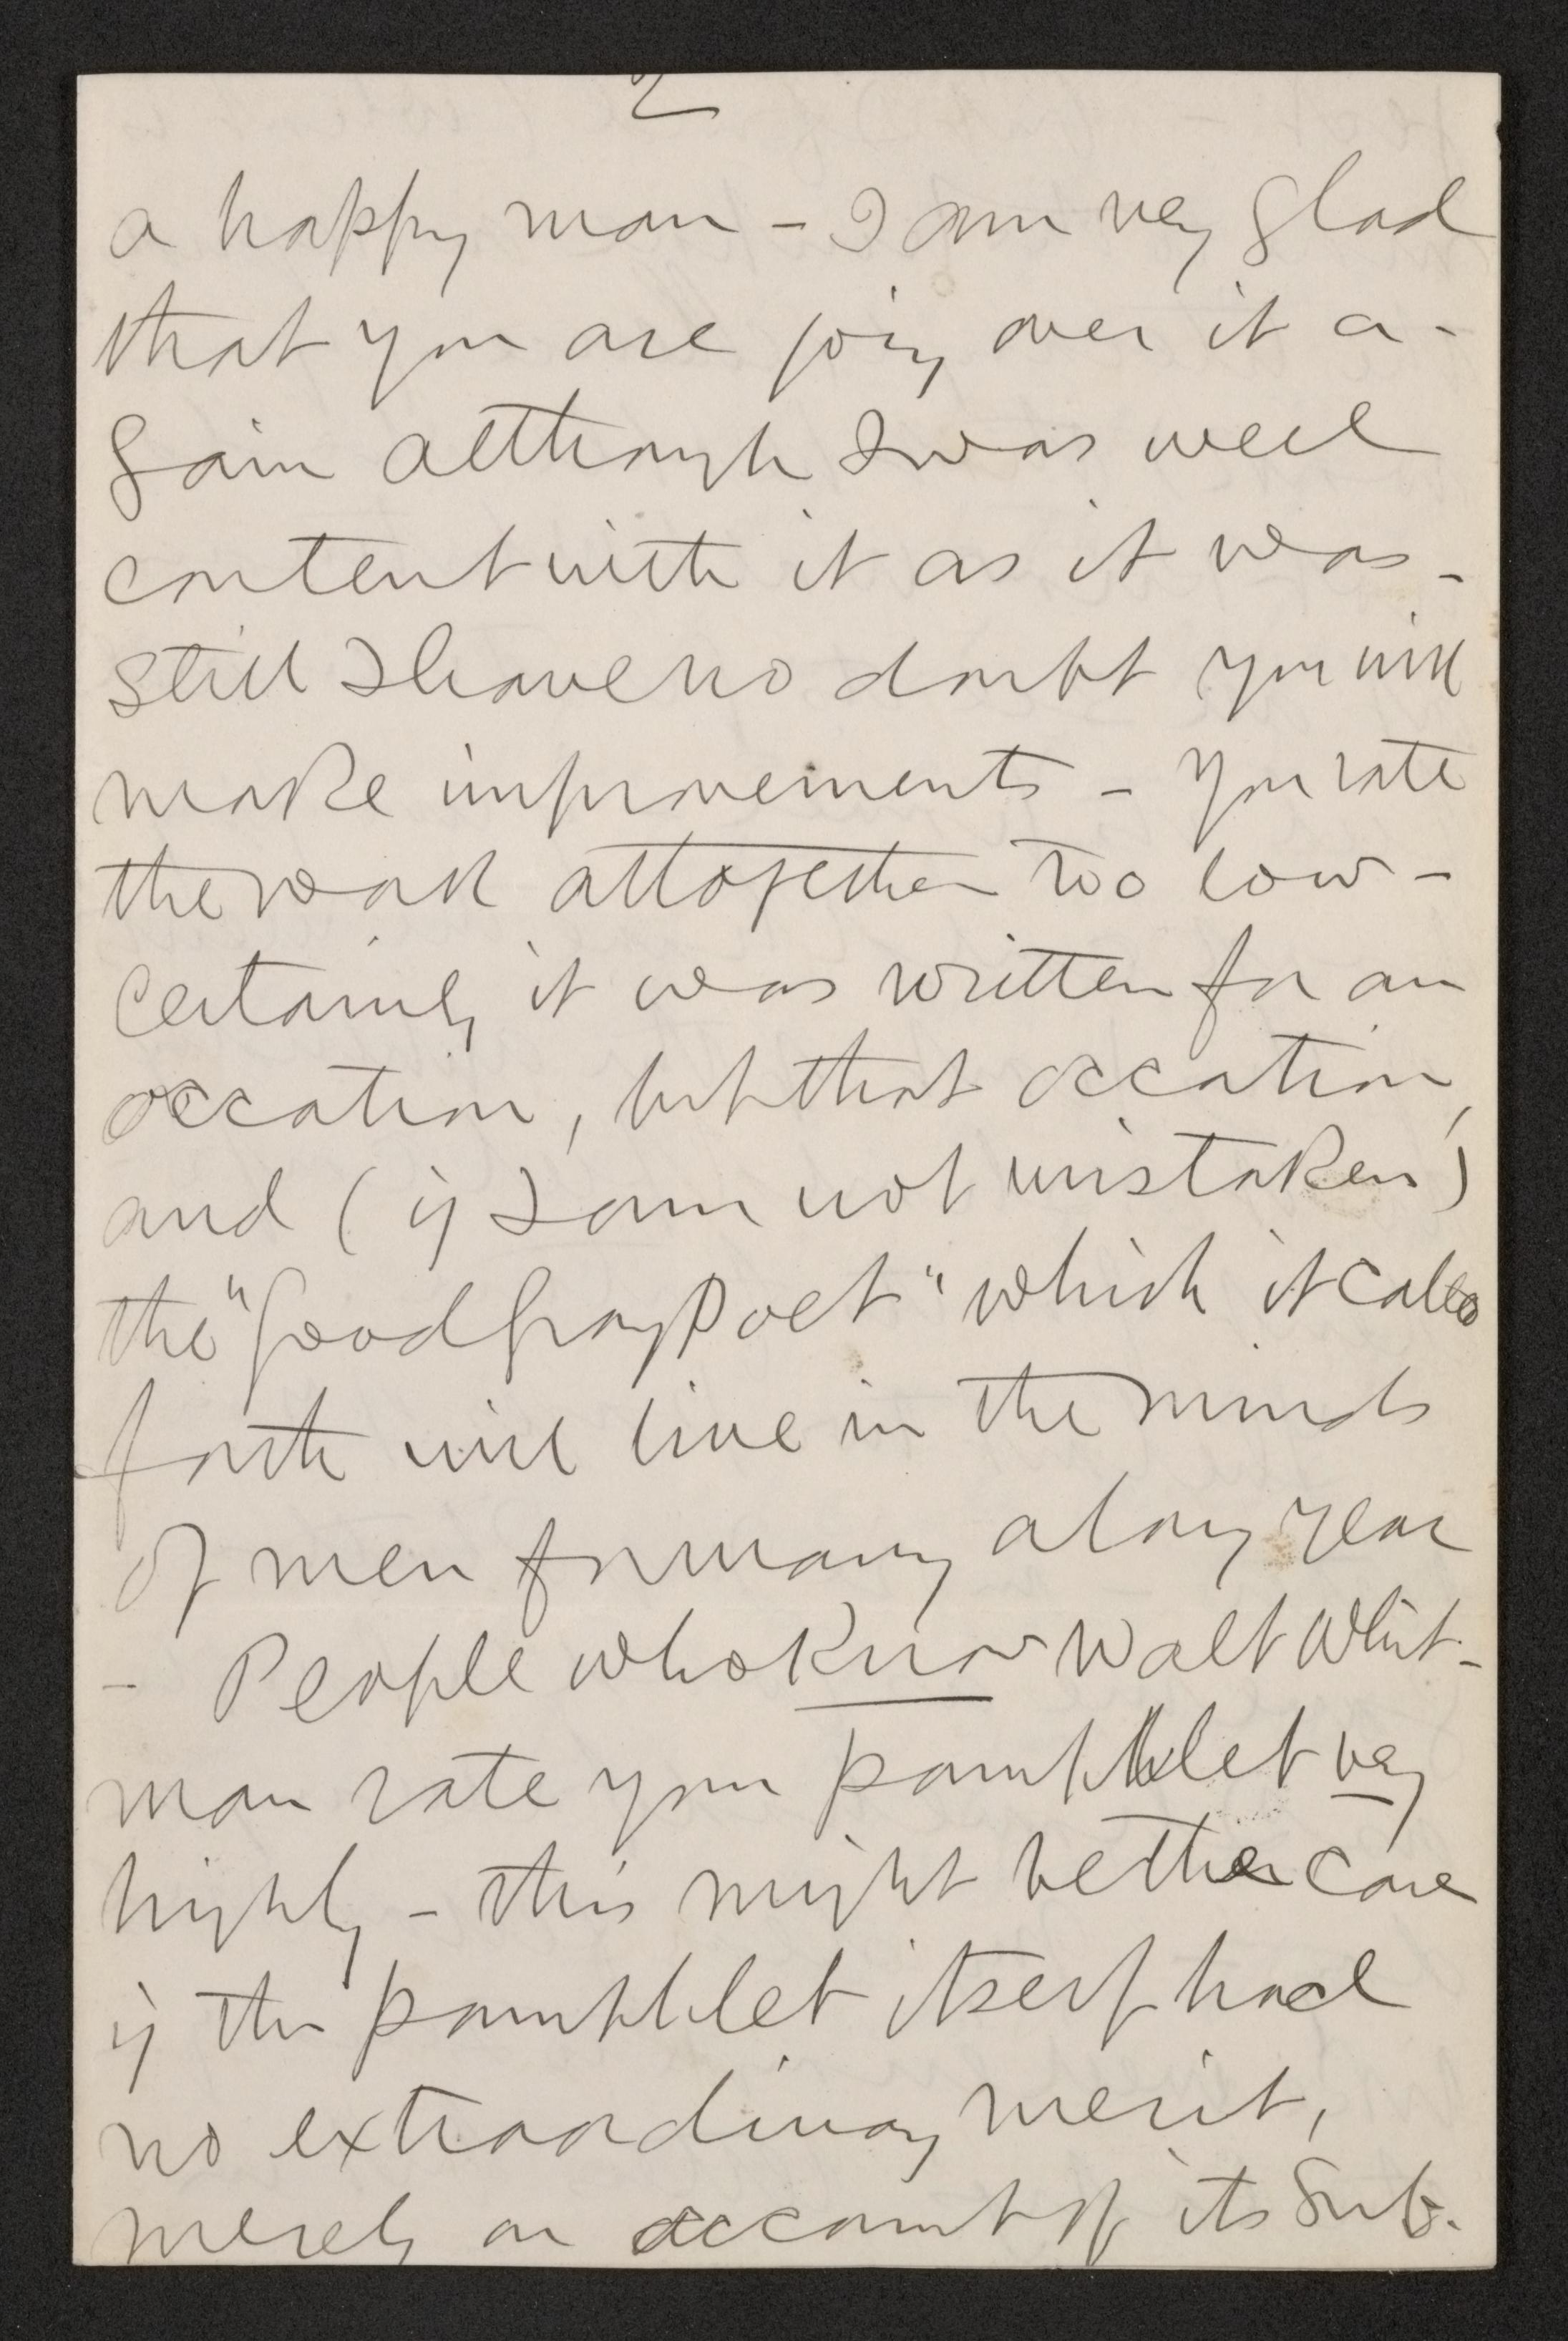 2
a happy man - I am very glad
that you are going over it a-
gain although I was well
content with it as it was -
still I have no doubt you will
make improvements - You rate
the work altogether too low -
certainly it was written for an
occation, but that occation,
and (if I am not mistaken)
the "Good Gray Poet" which it called
forth will live in the minds
of men for many a long year
- People who know Walt Whit-
man rate your pamphlet very
highly - this might be the case
if the pamphlet itself had
no extraordinary merit,
merely on account of its sub-